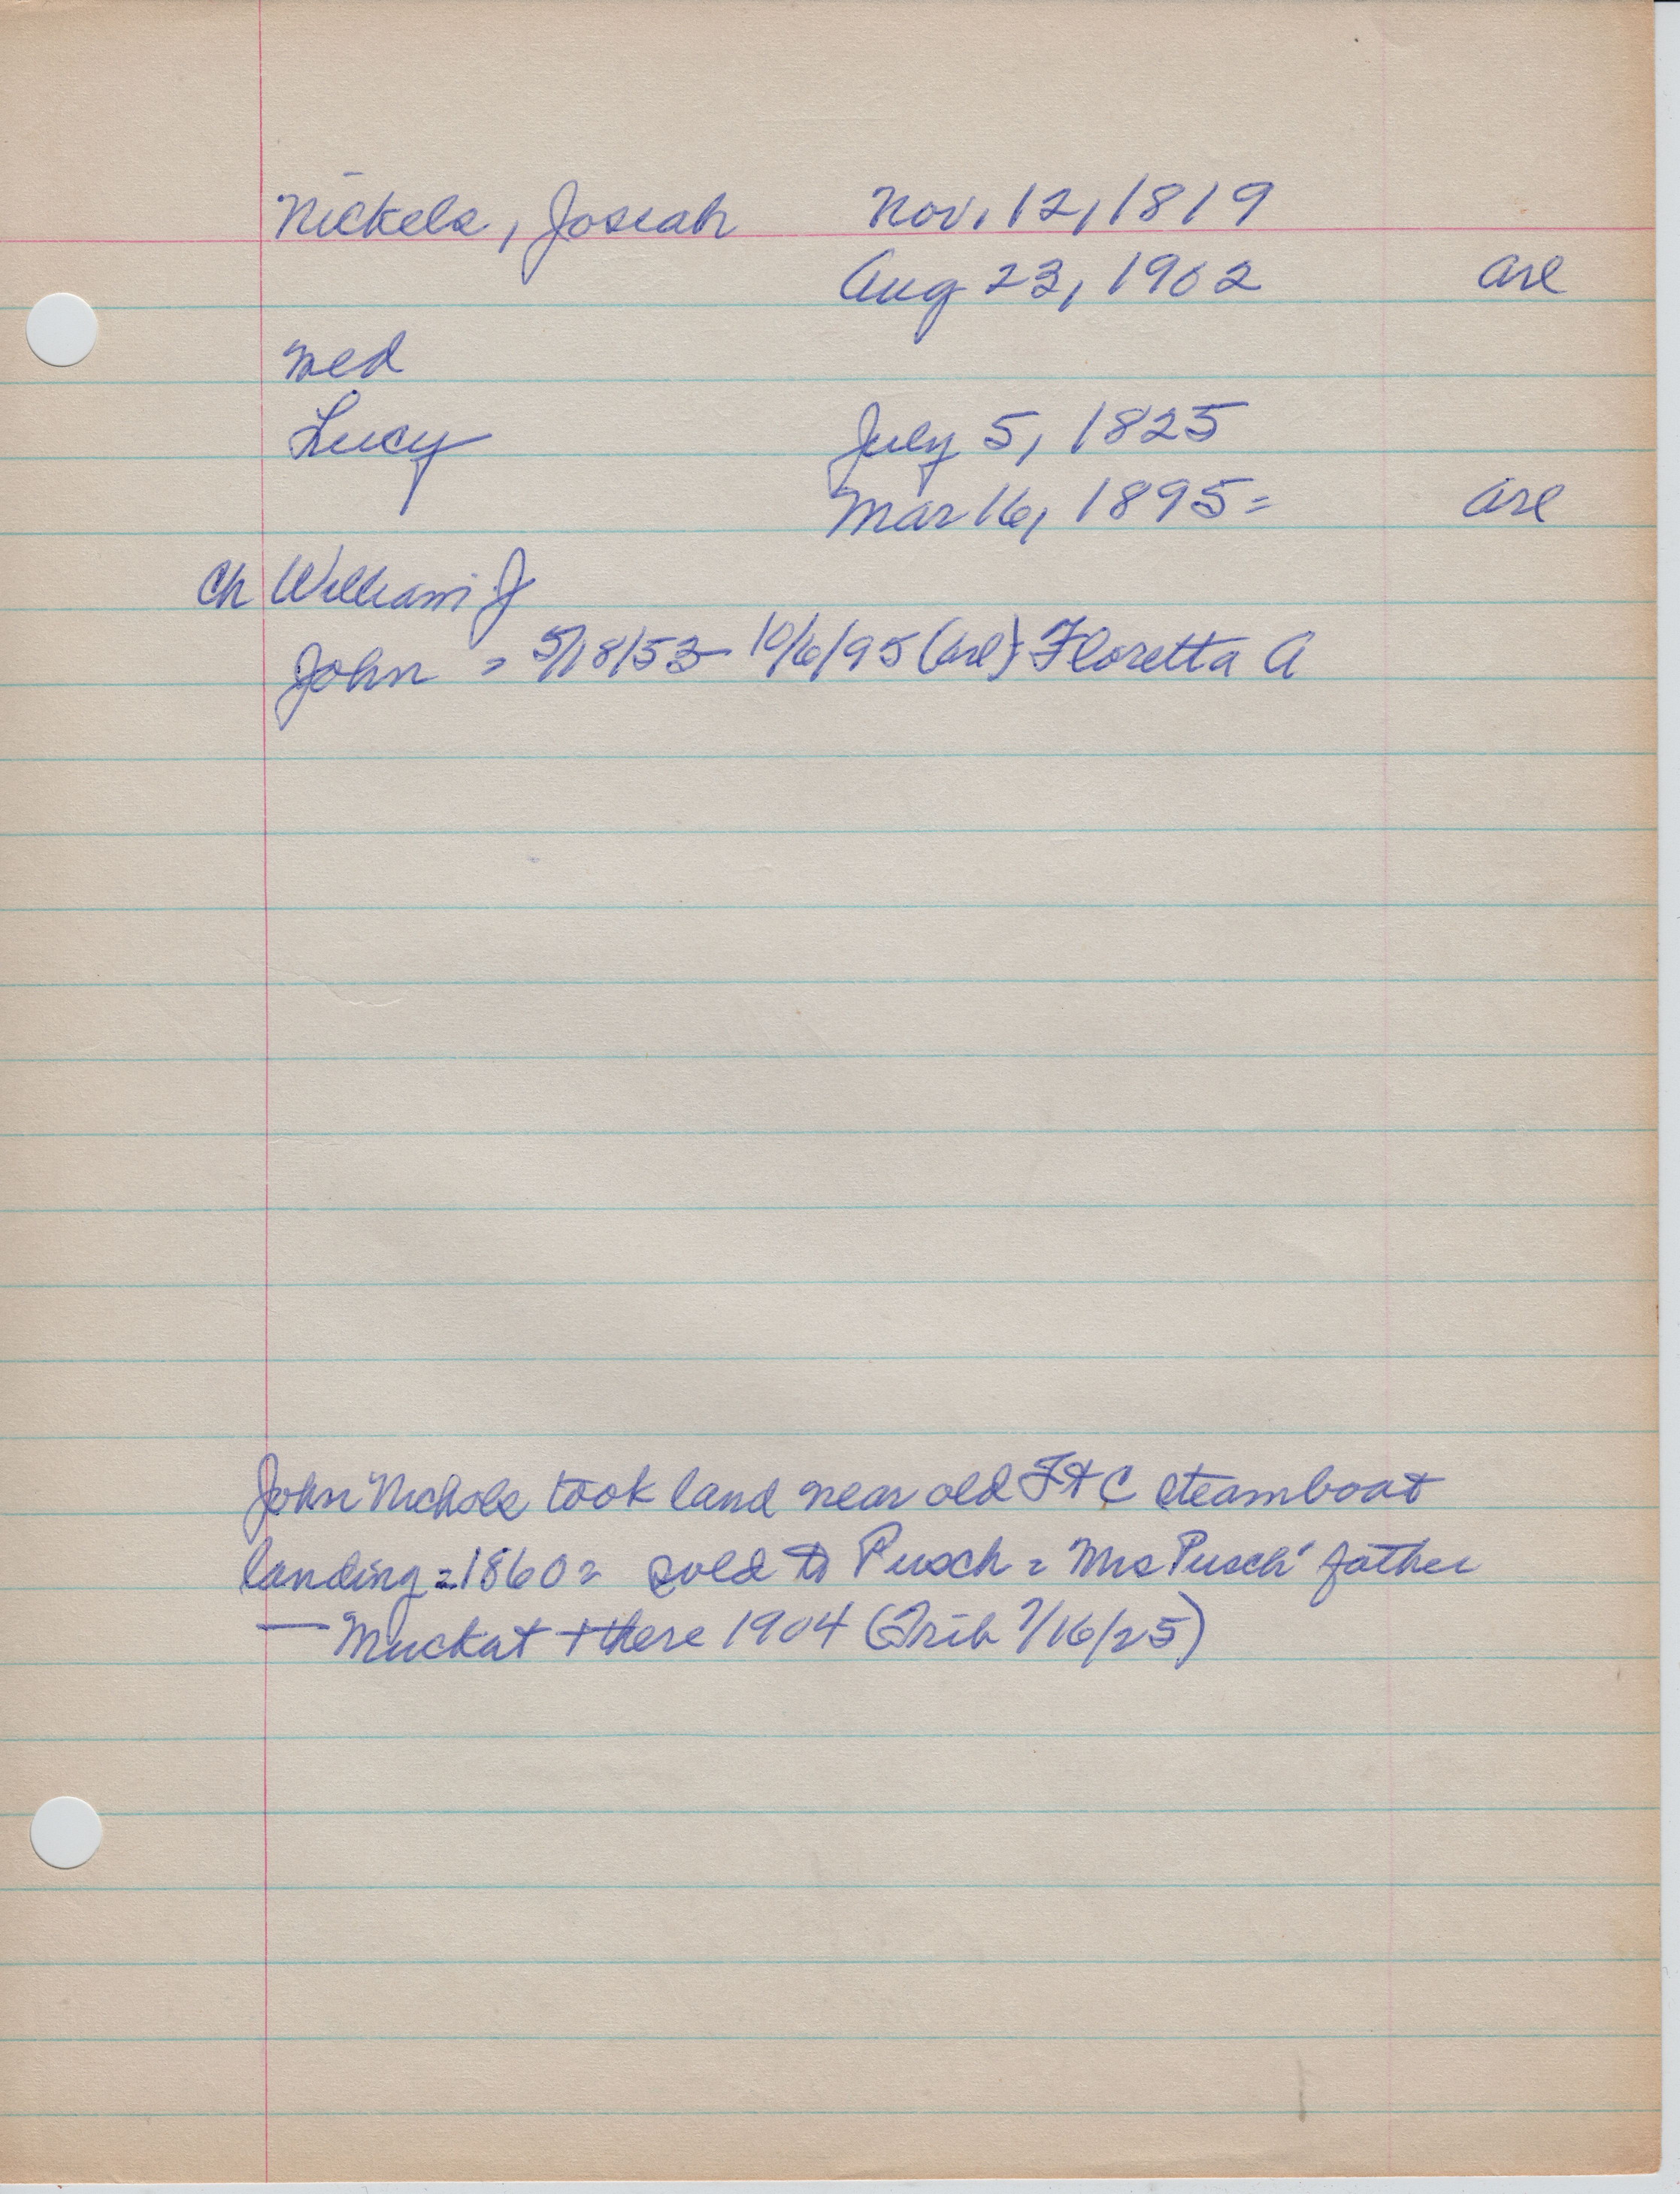 Nickels, Josiah Nov. 12, 1819
Aug 23, 1902 Arl
Wed
Lucy July 5, 1825
Mar 16, 1895= Arl
Ch William J
John = 5/18/53- 10/6/95 (Arl) Floretta A
John Nichols took land near old F + C steamboat
landing = 1860 = sold to Pusch = Mrs Pusch' father
— Muckat + there 1904 (Trib 7/16/25)